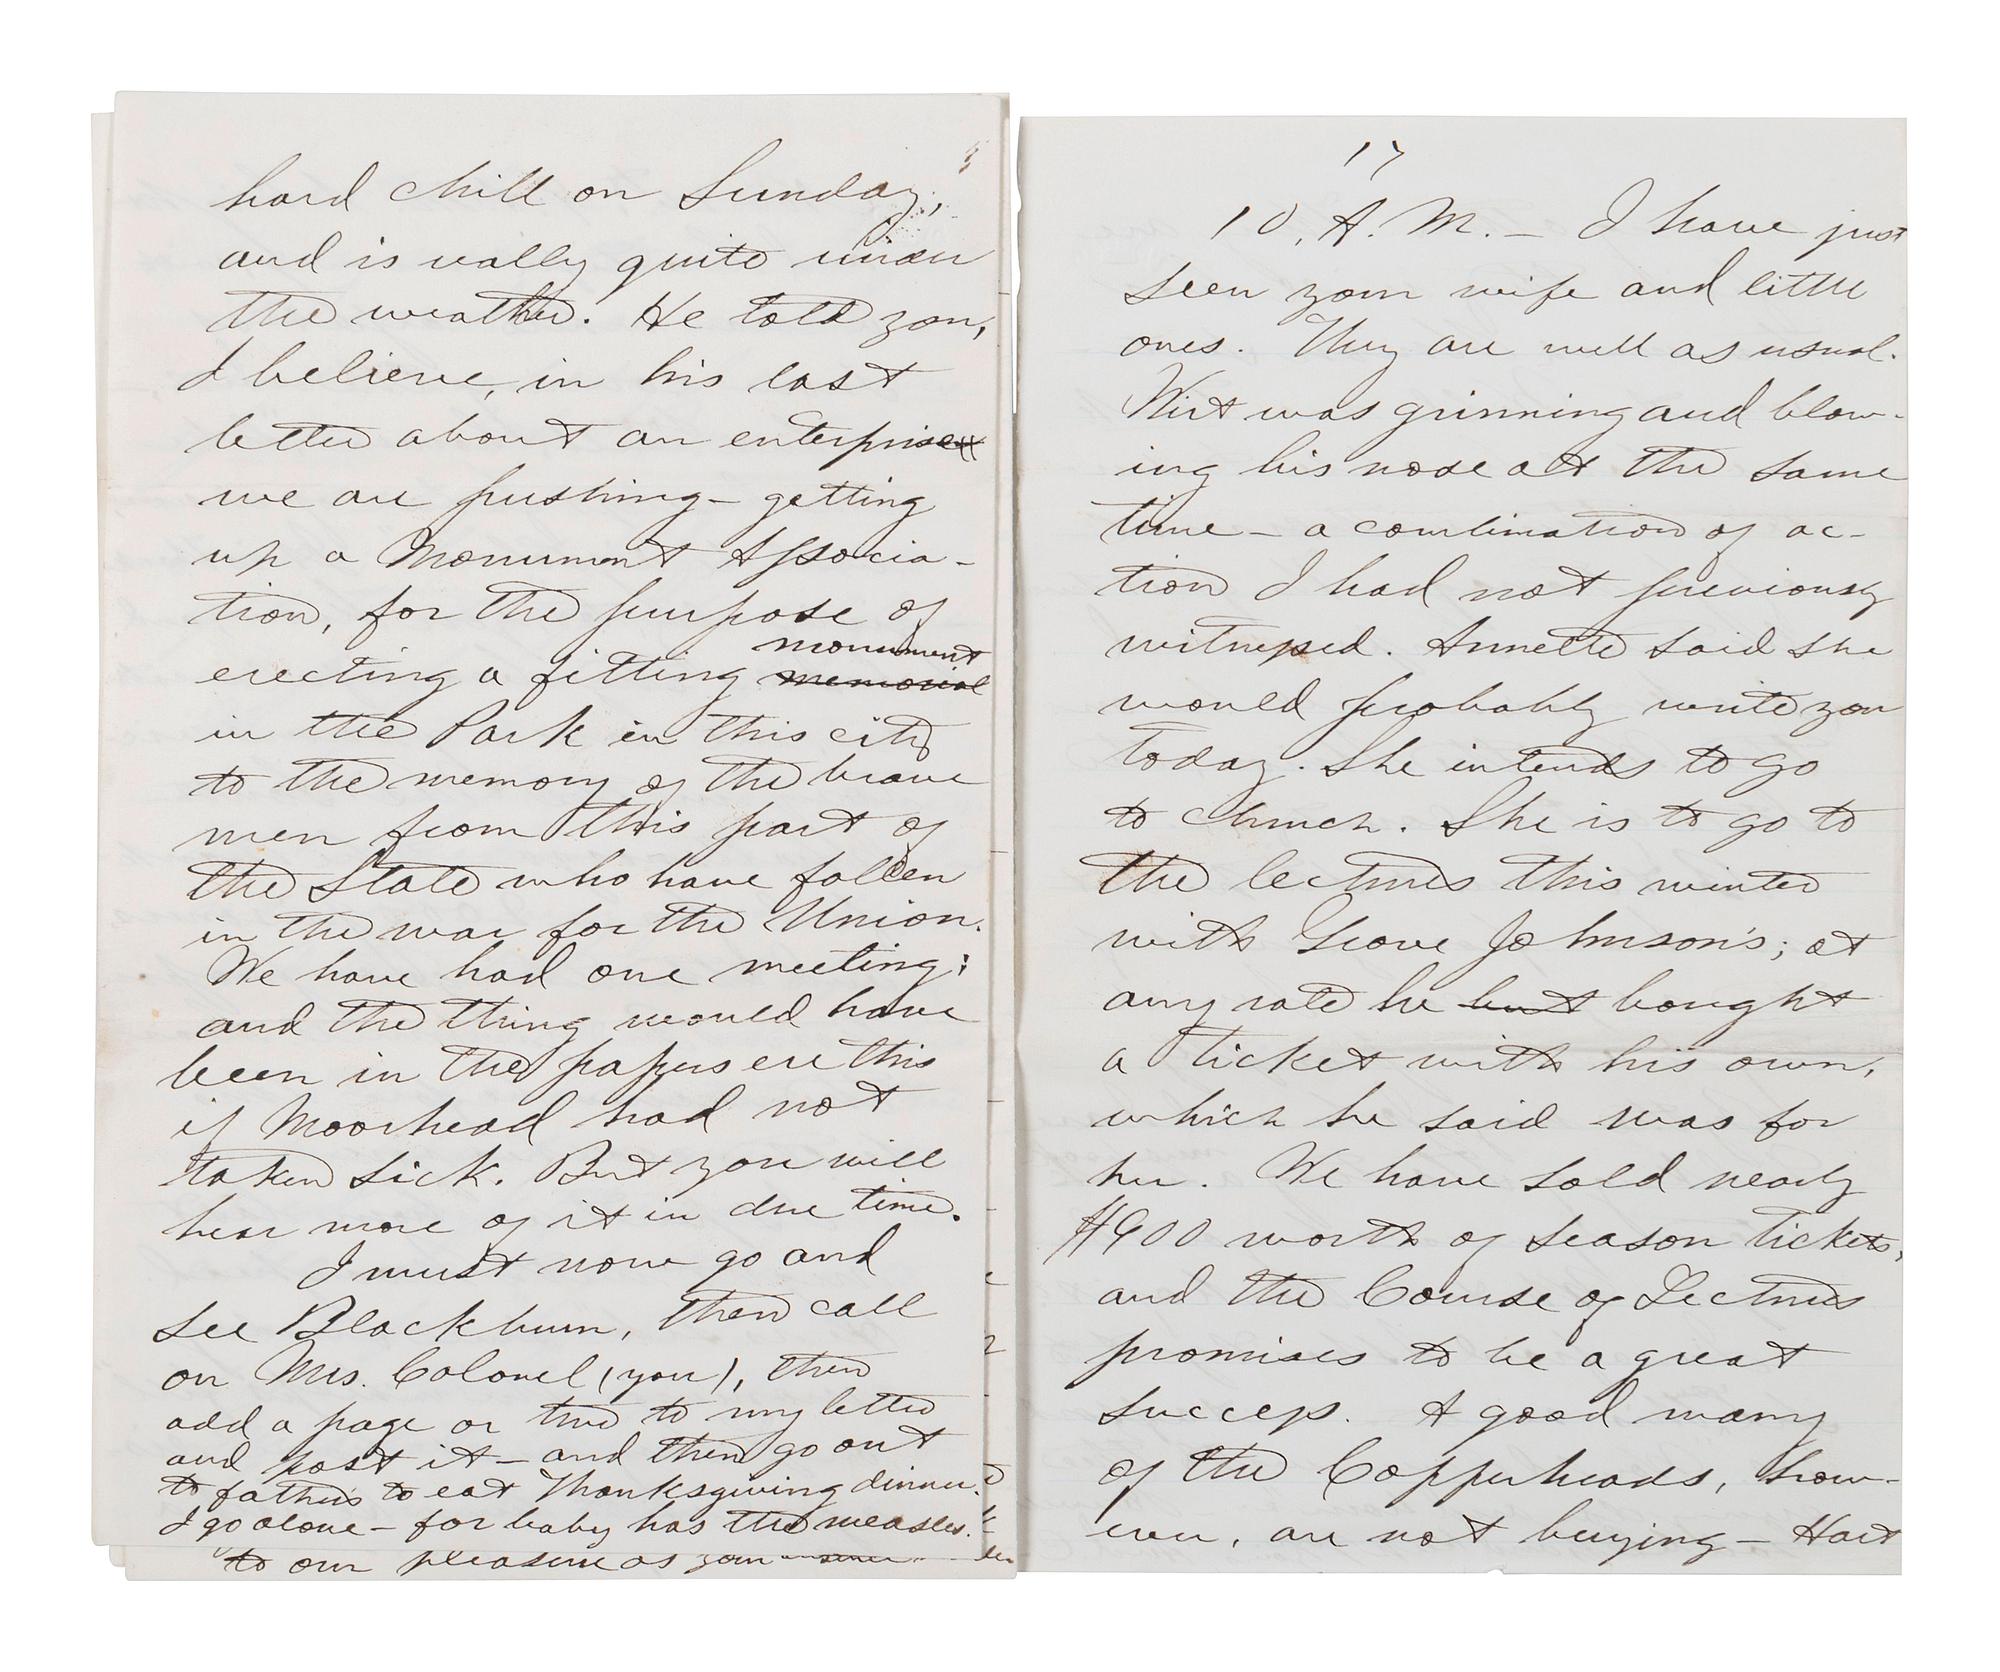 hard chill on Sunday,
and is really quite under
the weather. He told you,
I believe, in his last
letter about an enterprise
we are pushing — getting
up a Monument Associa-
tion, for the purpose of
erecting a fitting monument memorial
in the Park in this city
to the memory of the brave
men from this part of
the State who have fallen
in the war for the Union.
We have had one meeting;
and the thing would have
been in the papers ere this
if Moorhead had not
taken sick. But you will
hear more of it in due time.
I must now go and
see Blackburn, then call
on Mrs. Colonel (you), then
add a page or two to my letter
and post it — and then go out
to father's to eat Thanksgiving dinner.
I go alone — for baby has the measles.
to our pleasure as your
17
10, A.M. — I have just
seen your wife and little
ones. They are well as usual.
Wirt was grinning and blow-
ing his nose at the same
time — a combination of ac-
tion I had not previously
witnessed. Annette said she
would probably write you
today. She intends to go
to church. She is to go to
the lectures this winter
with Grove Johnson's; at
any rate he but bought
a ticket with his own,
which he said was for
her. We have sold nearly
$900 worth of season tickets,
and the Course of Lectures
promises to be a great
success. A good many
of the Copperheads, how-
ever, are not buying — Hart